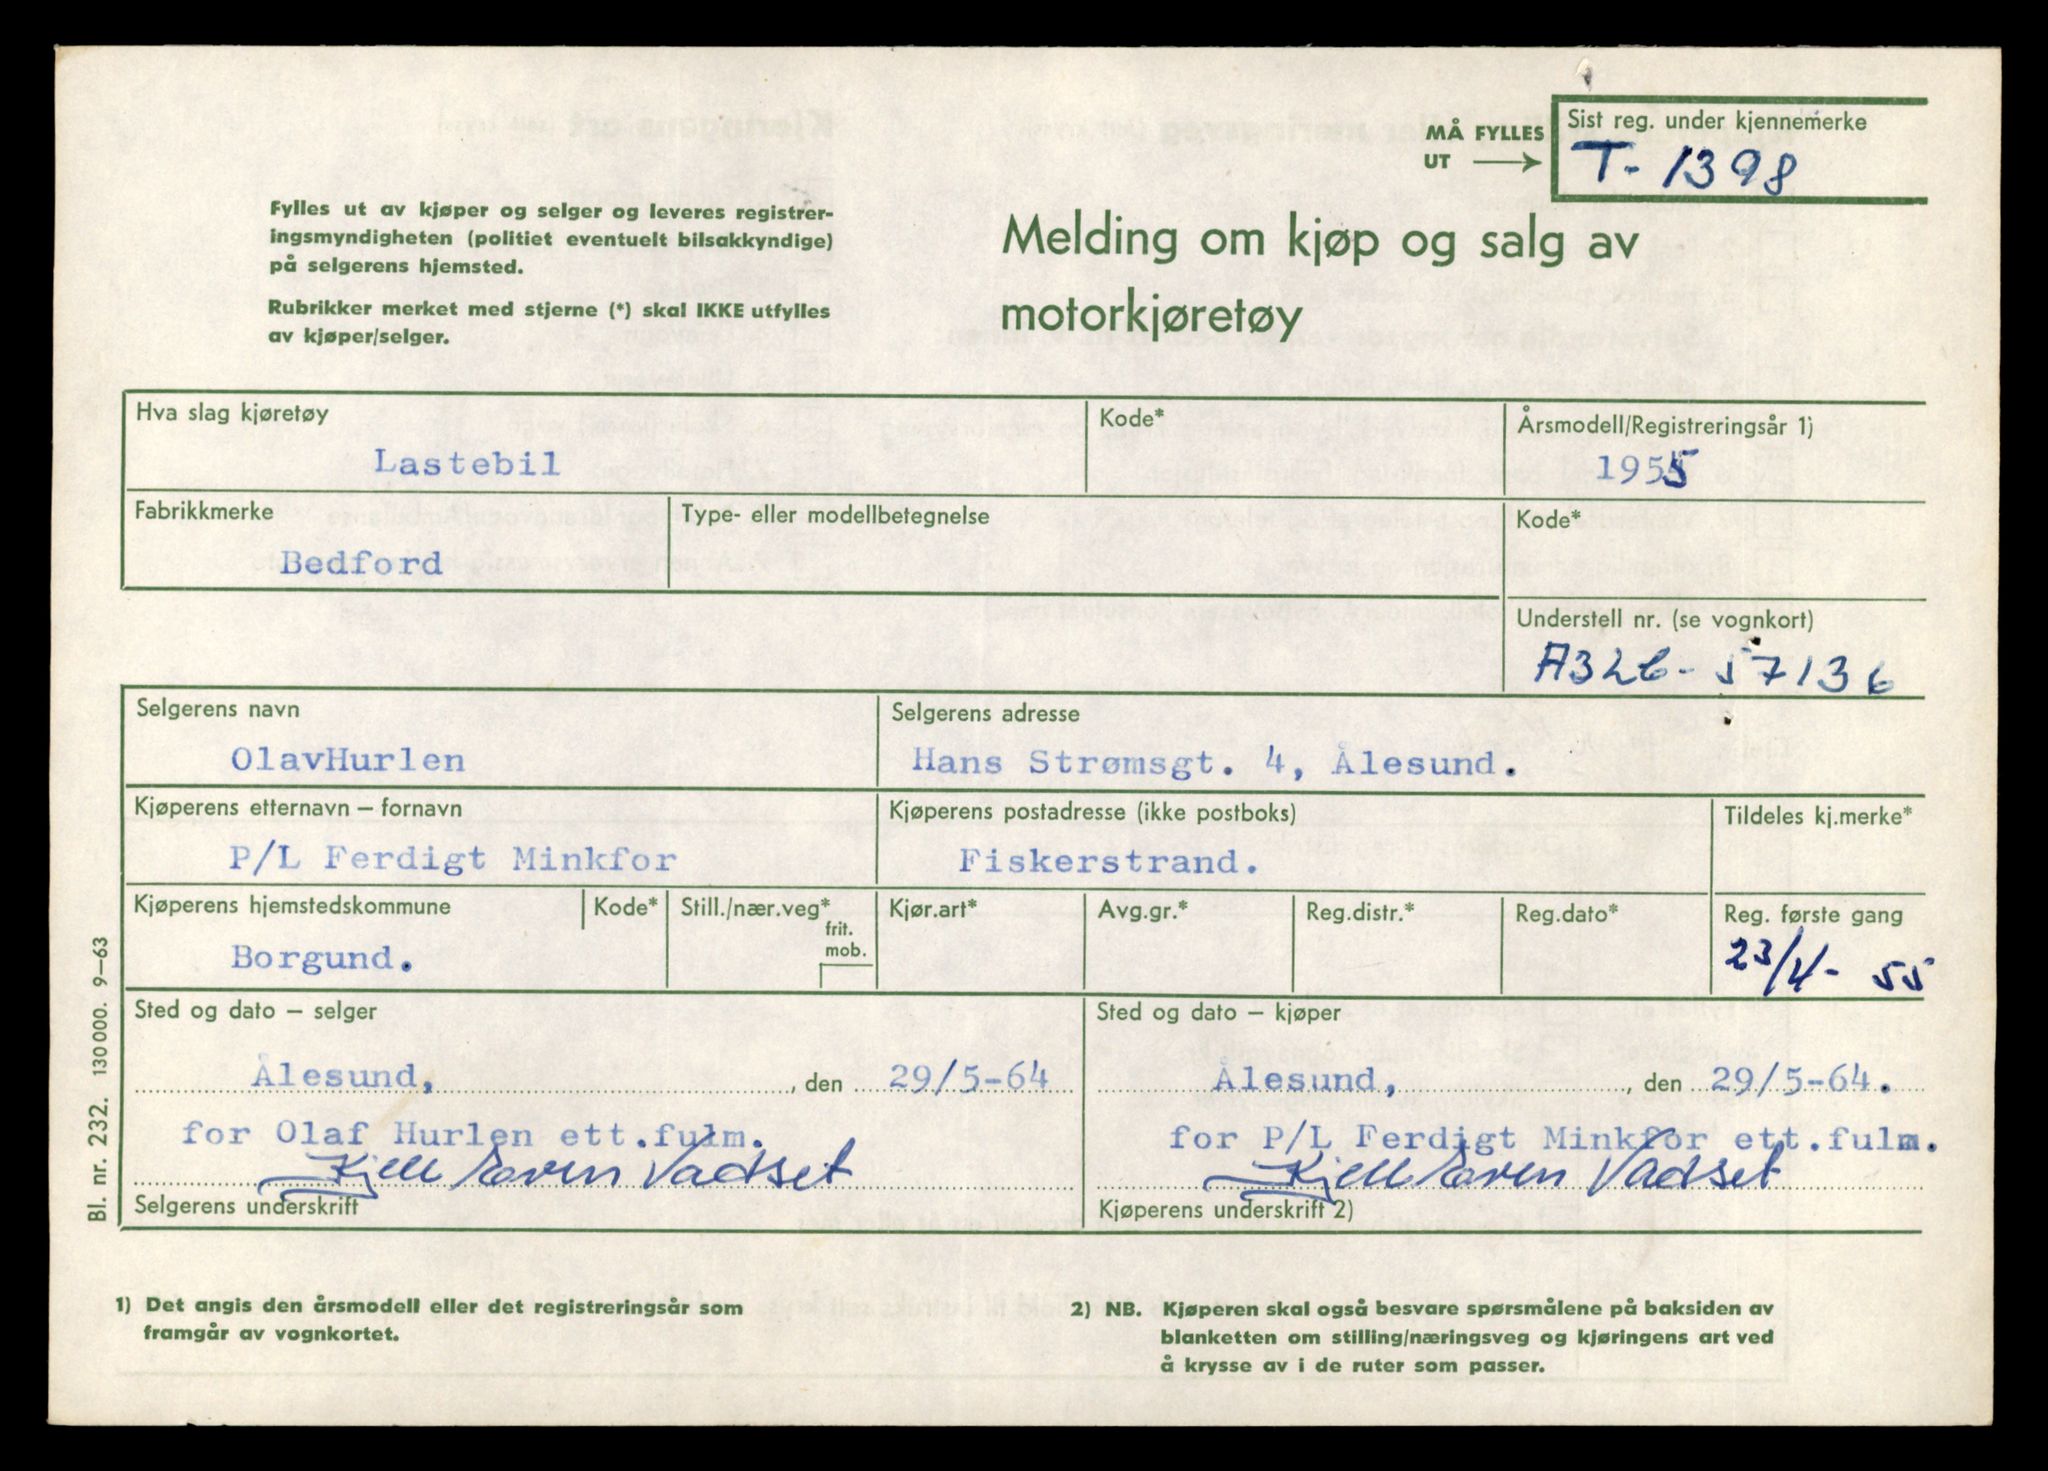 MÅ FYLLES UT
Sist reg. under kjennemerke
T- 1398
Fylles ut av kjøper og selger og leveres registrer-
ingsmyndigheten (politiet eventuelt bilsakkyndige)
på selgerens hjemsted.
Rubrikker merket med stjerne (*) skal IKKE utfylles
av kjøper/selger.
Melding om kjøp og salg av
motorkjøretøy
Hva slag kjøretøy
Kode*
Årsmodell/Registreringsår 1)
Lastebil
1955
Fabrikkmerke
Type- eller modellbetegnelse
Kode*
Bedford
Understell nr. (se vognkort)
A3L6- 57136
Selgerens navn
Selgerens adresse
OlavHurlen
Hans Strømsgt. 4, Ålesund.
Kjøperens etternavn – fornavn
Kjøperens postadresse (ikke postboks)
Tildeles kj.merke*
P/L Ferdigt Minkfor
Fiskerstrand.
Kjøperens hjemstedskommune
Kode*
Still./nær.veg*
frit.
mob.
Kjør.art*
Avg.gr.*
Reg.distr.*
Reg.dato*
Reg. første gang
Borgund.
23/4- 55
Sted og dato – selger
Sted og dato – kjøper
Ålesund, , den 29/5-64
Ålesund, , den 29/5-64.
for Olaf Hurlen ett.fulm.
for P/L Ferdigt Minkfor ett.fulm.
Kjell Even Vadset
Kjell Even Vadset
Selgerens underskrift
Kjøperens underskrift 2)
Bl. nr. 232. 130 000. 9–63
1) Det angis den årsmodell eller det registreringsår som
framgår av vognkortet.
2) NB. Kjøperen skal også besvare spørsmålene på baksiden av
blanketten om stilling/næringsveg og kjøringens art ved
å krysse av i de ruter som passer.